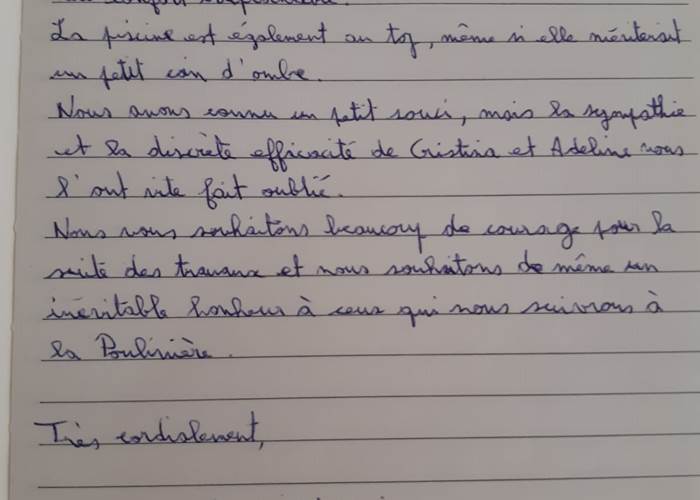 La piscine est également au top, même si elle mériterait
un petit coin d'ombre.
Nous avons connu un petit souci, mais la sympathie
et la discrète efficacité de Cristina et Adeline nous
l'ont vite fait oublié.
Nous vous souhaitons beaucoup de courage pour la
suite des travaux et nous souhaitons de même un
inévitable bonheur à ceux qui nous suivrons à
la Poulinière.
Très cordialement,